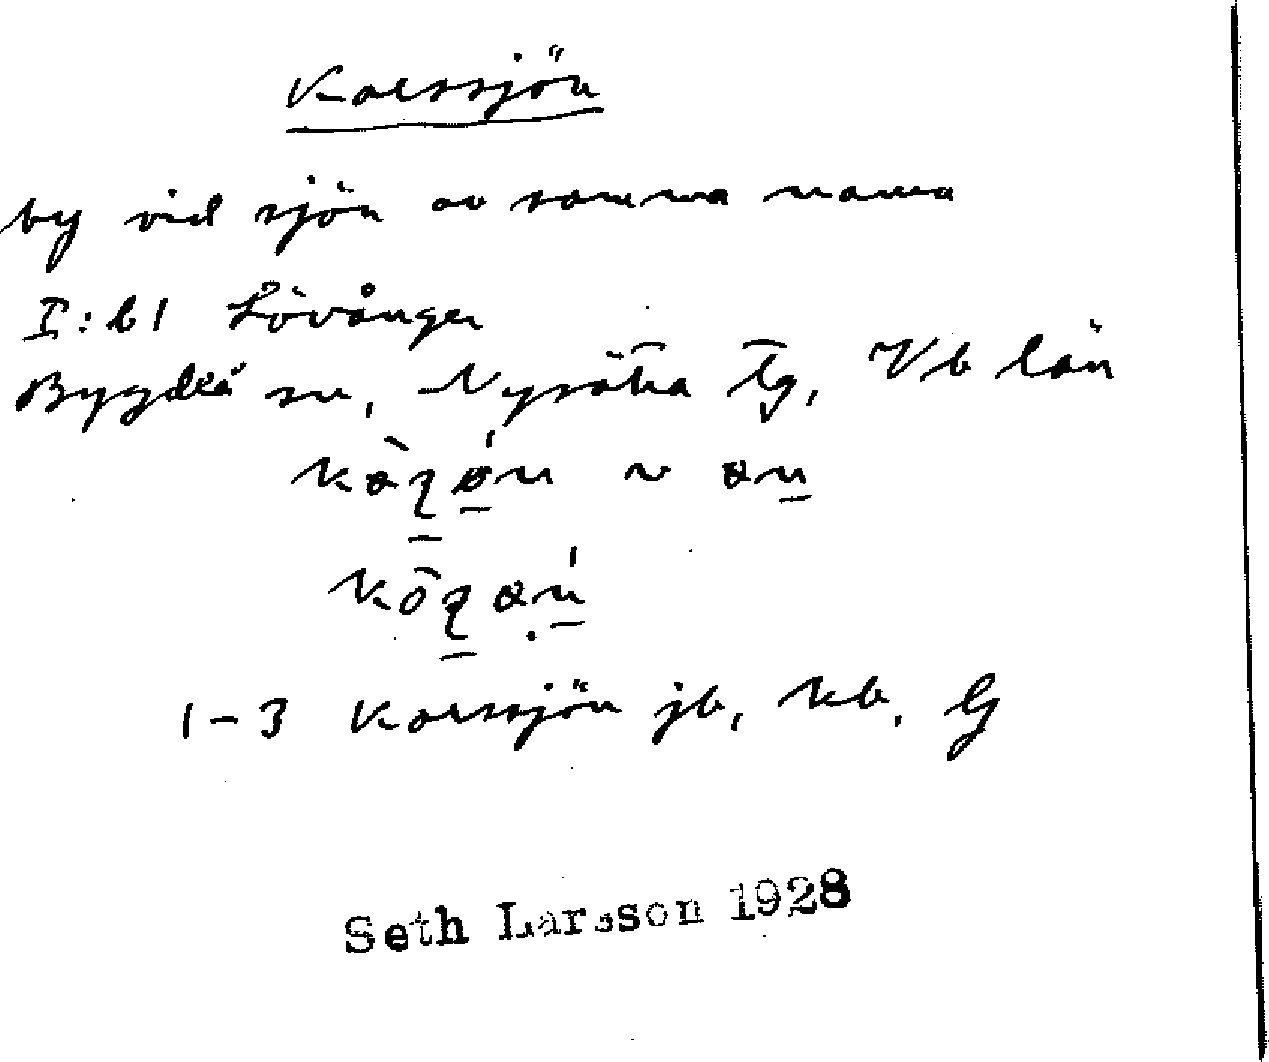 Korssjön
by vid sjön av samma namn
I:b1 Lövånger
Bygdeå sn, Nysätra tg, Vb län
1-3 Korssjön jb, kb, Gj
Seth Larsson 1928